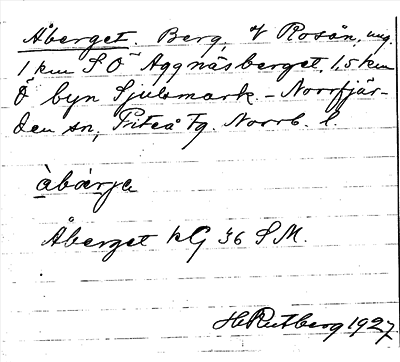 Åberget. Berg, V Rosån, ung.
1 km SO Aggnäsberget, 1,5 km
O byn Sjulsmark. – Norrfjär-
den sn, Piteå tg. Norrb. l.
àbærje
Åberget kG 36 SM.
H Rutberg 1927